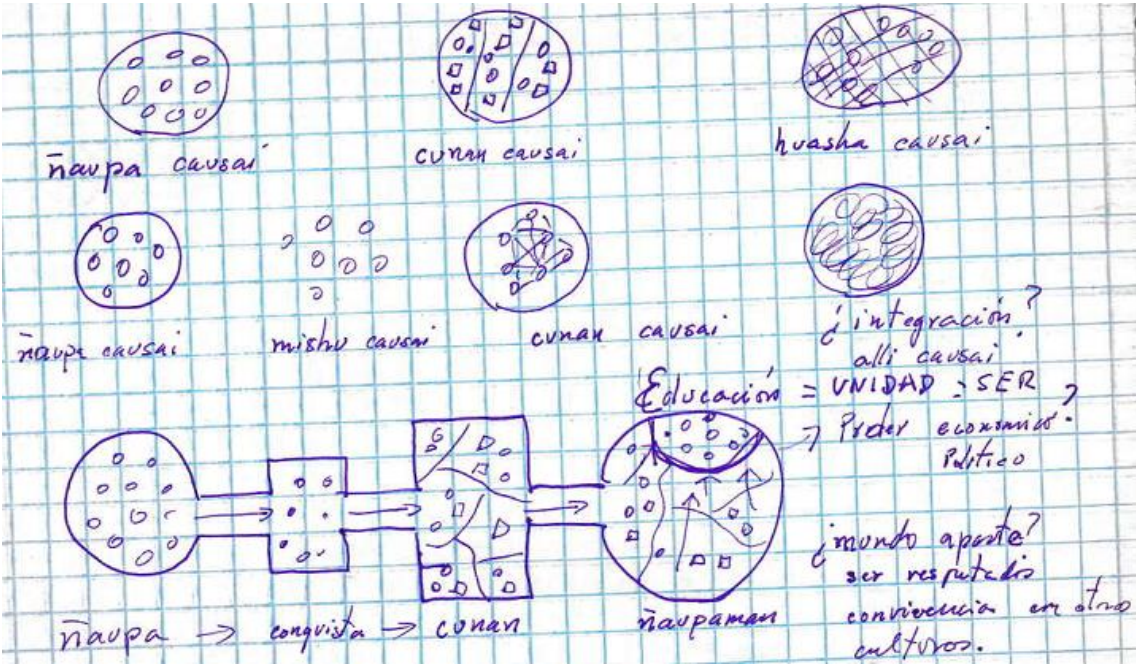 ñaupa causai
cunan causai
huasha causai
ñaupa causai
mishu causai
cunan causai
¿integración?
alli causai
Educación = UNIDAD = SER
Poder economico?
Politico
¿mundo aparte?
ser respetados
convivencia en otras
culturas.
ñaupa → conquista → cunan
ñaupaman